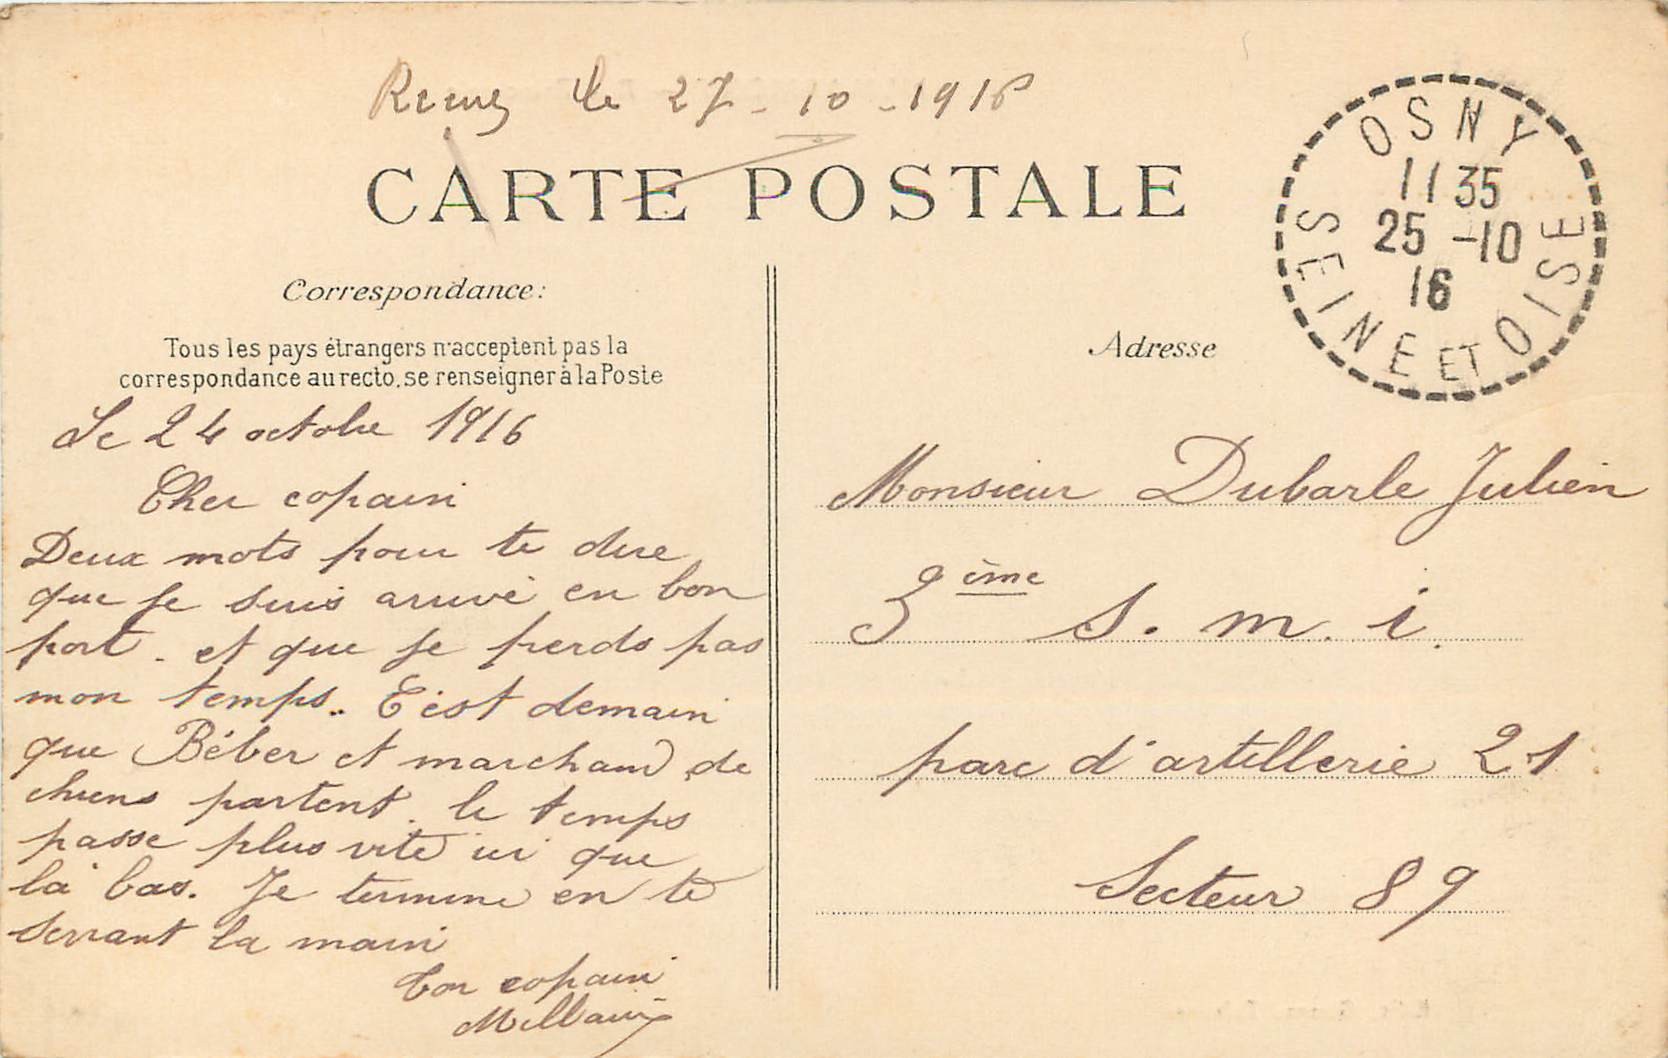 le 27-10-1916
CARTE POSTALE
OSNY
11 35
25 -10
16
SEINE ET OISE
Correspondance:
Tous les pays étrangers n'acceptent pas la
correspondance au recto, se renseigner à la Poste
Le 24 octobre 1916
Cher copain
Deux mots pour te dire
que je suis arrivé en bon
port. et que je perds pas
mon temps.. C'est demain
que Béber et marchand de
chiens partent. le temps
passe plus vite ici que
là bas. Je termine en te
serrant la main
Ton copain
Adresse
Monsieur Dubarle Julien
3ème S. m. i.
parc d'artillerie 21
Secteur 89